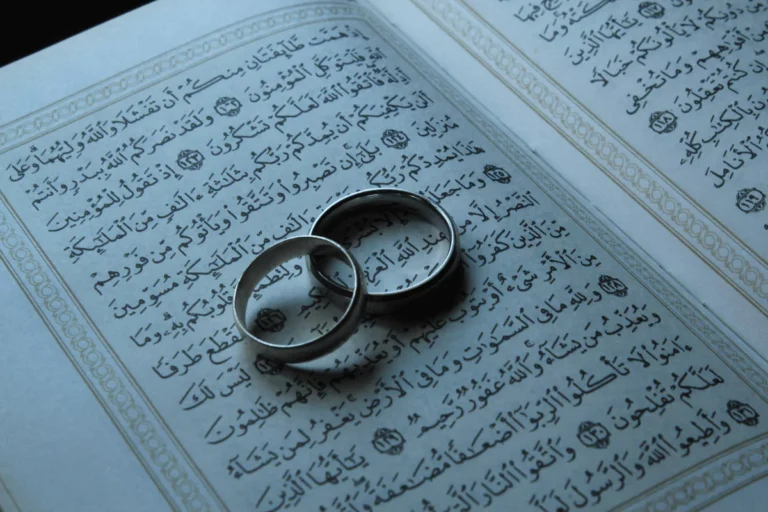 يَٰٓأَيُّهَا ٱلَّذِينَ
لَا يَأْلُونَكُمْ خَبَالًا
أَفْوَٰهِهِمْ وَمَا تُخْفِى
كُنتُمْ تَعْقِلُونَ ١١٨
بِٱلْكِتَٰبِ كُلِّهِ
ٱلْأَنَامِلَ
١١٩
إِذْ هَمَّت طَّآئِفَتَانِ مِنكُمْ أَن تَفْشَلَا وَٱللَّهُ وَلِيُّهُمَا وَعَلَى
ٱللَّهِ فَلْيَتَوَكَّلِ ٱلْمُؤْمِنُونَ ١٢٢ وَلَقَدْ نَصَرَكُمُ ٱللَّهُ بِبَدْرٍ وَأَنتُمْ
أَذِلَّةٌ فَٱتَّقُوا۟ ٱللَّهَ لَعَلَّكُمْ تَشْكُرُونَ ١٢٣ إِذْ تَقُولُ لِلْمُؤْمِنِينَ
أَلَن يَكْفِيَكُمْ أَن يُمِدَّكُمْ رَبُّكُم بِثَلَٰثَةِ ءَالَٰفٍ مِّنَ ٱلْمَلَٰٓئِكَةِ
مُنزَلِينَ ١٢٤ بَلَىٰٓ إِن تَصْبِرُوا۟ وَتَتَّقُوا۟ وَيَأْتُوكُم مِّن فَوْرِهِمْ
هَٰذَا يُمْدِدْكُمْ رَبُّكُم ءَالَٰفٍ مِّنَ ٱلْمَلَٰٓئِكَةِ مُسَوِّمِينَ
١٢٥ وَمَا جَعَلَهُ إِلَّا بُشْرَىٰ وَلِتَطْمَئِنَّ قُلُوبُكُم بِهِۦ وَمَا
ٱلنَّصْرُ إِلَّا مِنْ عِندِ ٱللَّهِ ٱلْعَزِيزِ ١٢٦ لِيَقْطَعَ طَرَفًا
مِّنَ ٱلَّذِينَ كَفَرُوٓا۟ لَيْسَ لَكَ
مِنَ ٱلْأَمْرِ شَىْءٌ أَوْ يَتُوبَ عَلَيْهِمْ أَوْ يُعَذِّبَهُمْ فَإِنَّهُمْ ظَٰلِمُونَ
١٢٨ وَلِلَّهِ مَا فِى ٱلسَّمَٰوَٰتِ وَمَا فِى ٱلْأَرْضِ يَغْفِرُ لِمَن يَشَآءُ
وَيُعَذِّبُ مَن يَشَآءُ وَٱللَّهُ غَفُورٌ رَّحِيمٌ ١٢٩ يَٰٓأَيُّهَا ٱلَّذِينَ
ءَامَنُوا۟ لَا تَأْكُلُوا۟ ٱلرِّبَوٰٓا۟ أَضْعَٰفًا مُّضَٰعَفَةً وَٱتَّقُوا۟
لَعَلَّكُمْ تُفْلِحُونَ ١٣٠ وَٱتَّقُوا۟ ٱلنَّارَ ٱلَّتِىٓ
١٣١ وَأَطِيعُوا۟ ٱللَّهَ وَٱلرَّسُولَ